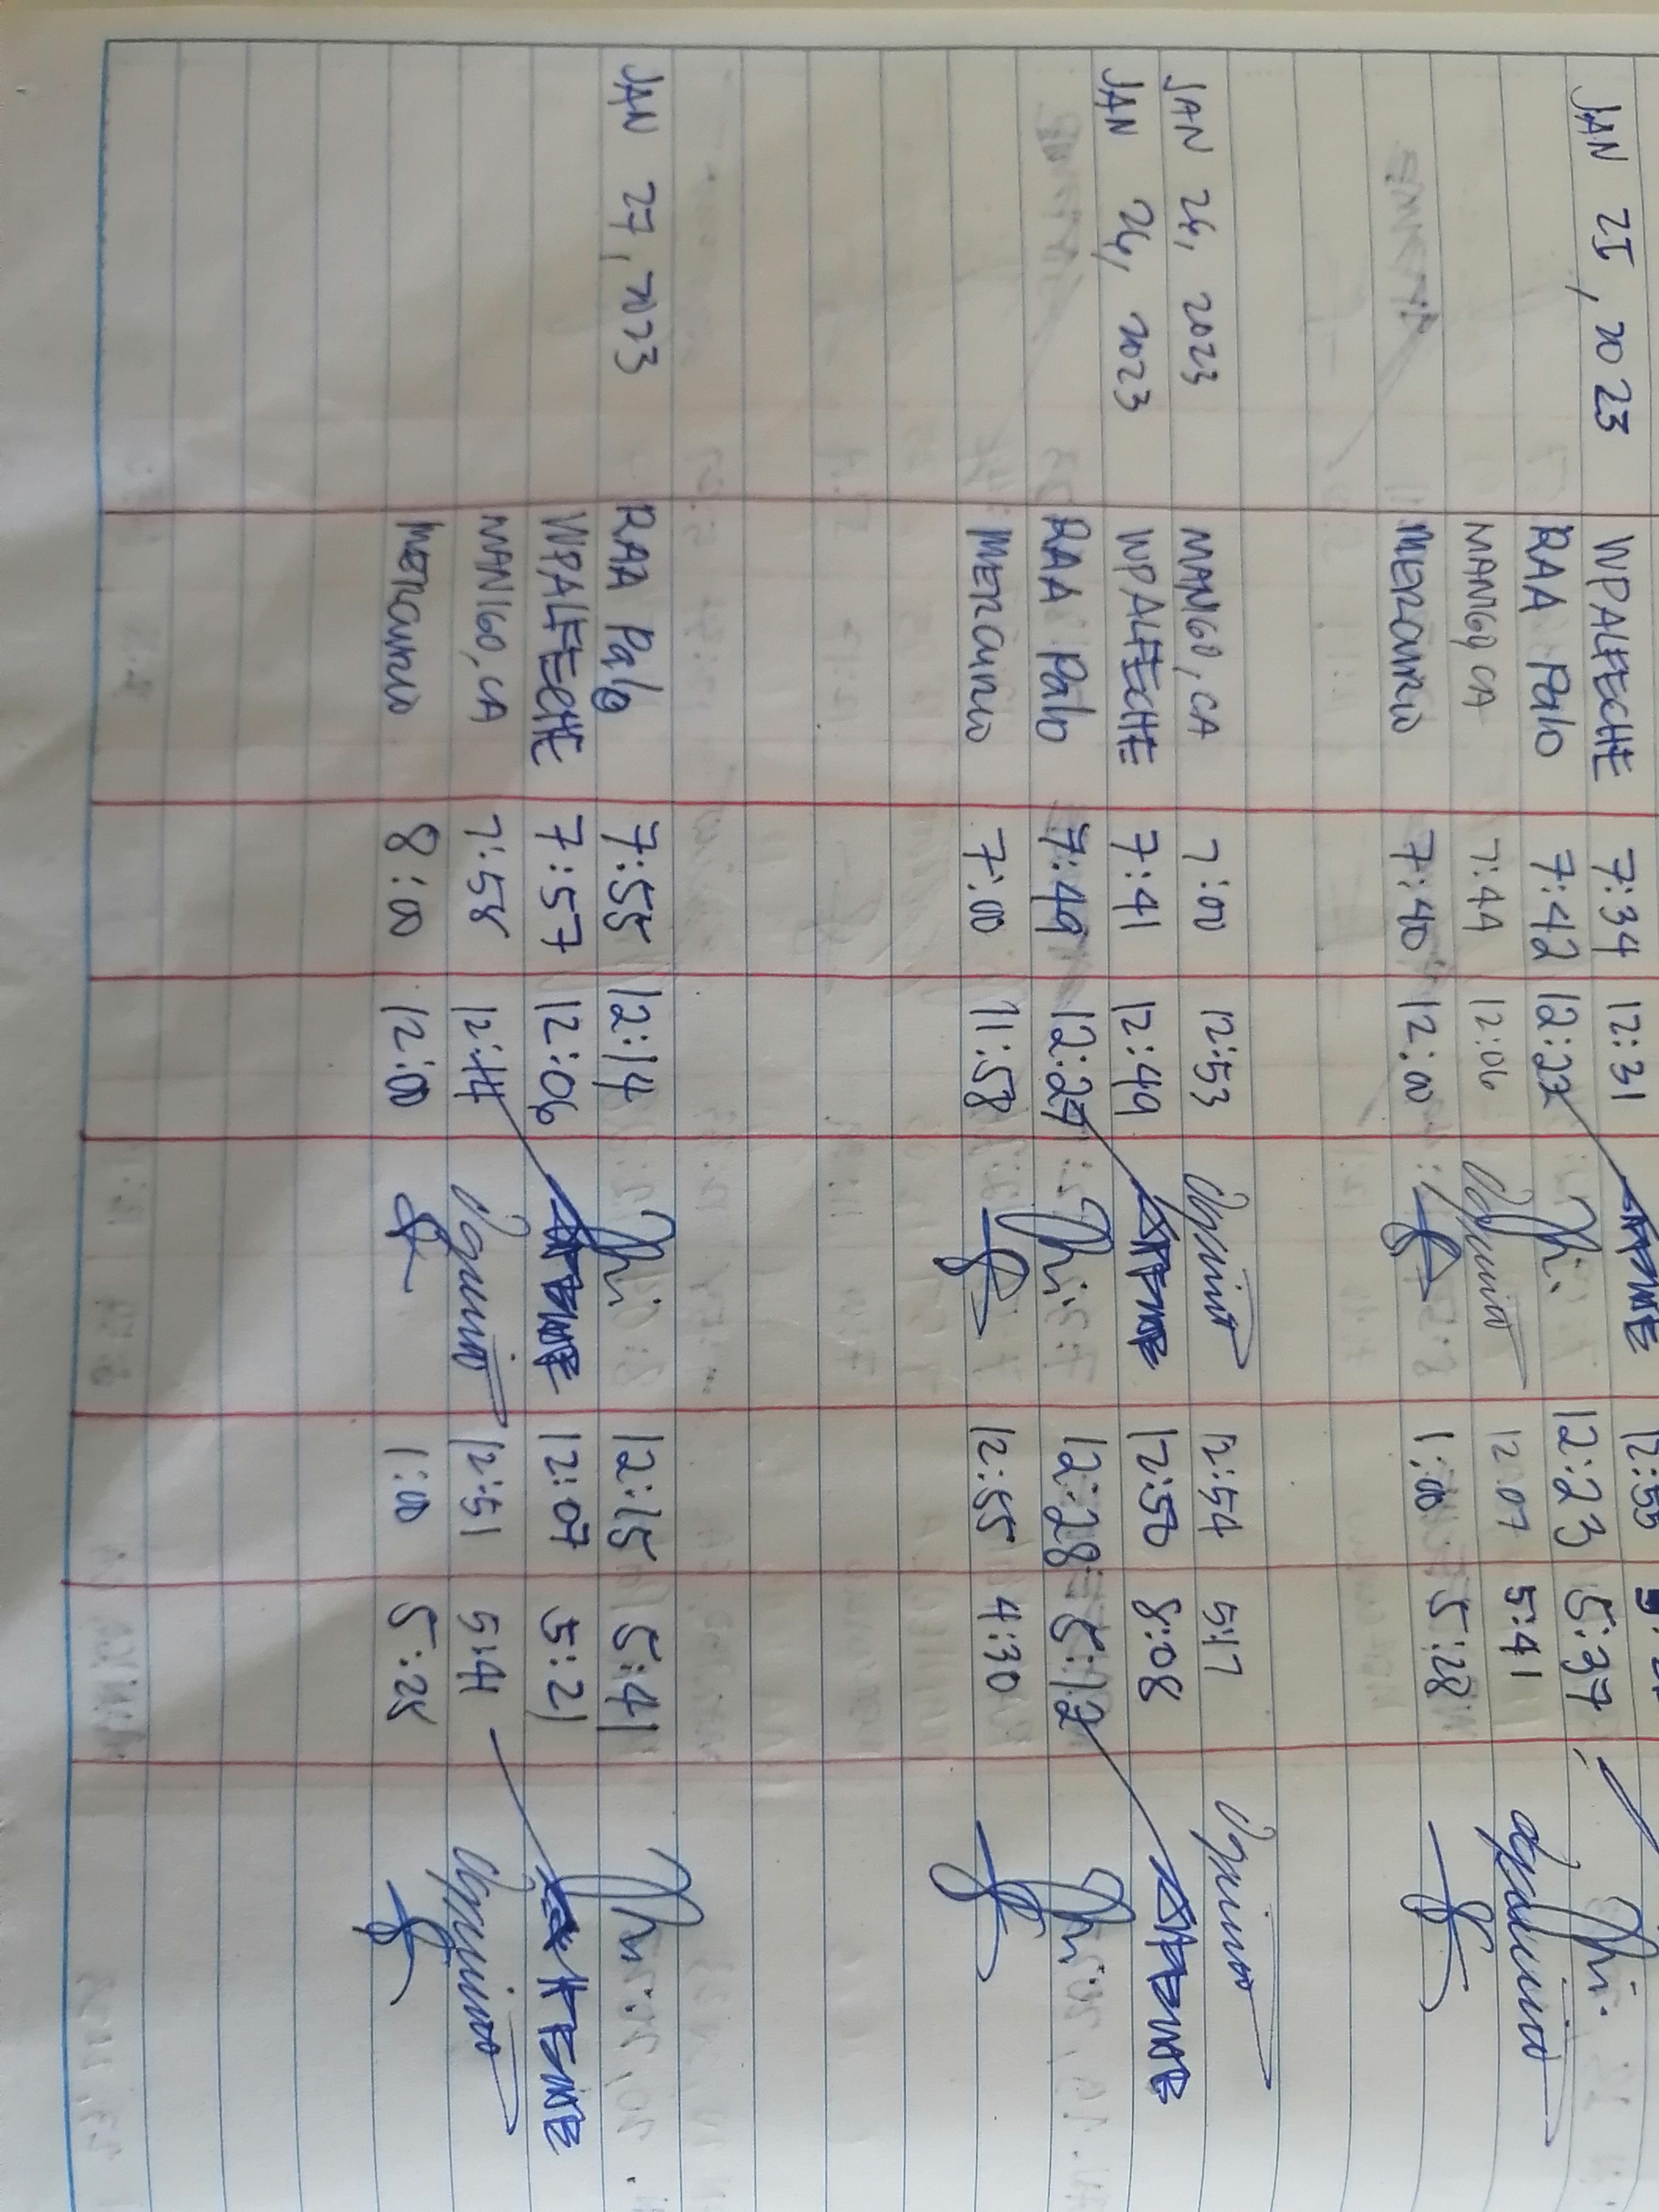 JAN 25, 2023 WPALFECHE 7:34 12:31 12:55
RAA Palo 7:42 12:22 12:23 5:37
MANIGO, CA 7:44 12:06 12:07 5:41
MERCURIO 7:40 12:00 1:00 5:28
JAN 26, 2023 MANIGO, CA 7:00 12:53 12:54 5:17
JAN 26, 2023 WPALFECHE 7:41 12:49 12:50 8:08
RAA Palo 7:49 12:27 12:28 5:12
MERCURIO 7:00 11:58 12:55 4:30
JAN 27, 2023 RAA Palo 7:55 12:14 12:15 5:41
WPALFECHE 7:57 12:06 12:07 5:21
MANIGO, CA 7:58 12:44 12:51 5:41
MERCURIO 8:00 12:00 1:00 5:25